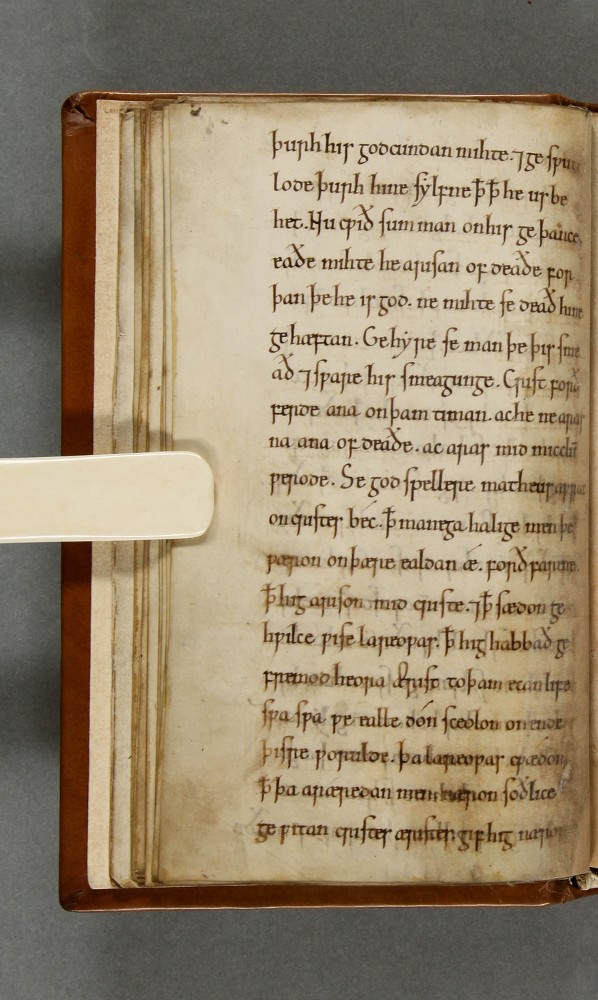 þurh his godcundan mihte. ⁊ ge
lode þurh hine sylfne þ þ he us be
het. Nu cƿið sum man on his geþance,
eaðe mihte he arisan of deaðe for
þan þe he is god. ne mihte se deað hine
gehæftan. Gehyre se man þe þis sme
að ⁊sƿare his smeagunge. Crist forð
ferde ana on þam timan. ac he ne aras
na ana of deaðe. ac aras mid micclū
ƿerode. Se godspellere matheus
on cristes béc. þ manega halige men þe
ƿæron on þære ealdan ǽ. forð farene.
þ hig arison mid criste. ⁊ þ sædon ge
hƿilce ƿise lareoƿas. þ hig habbað ge
fremod heora ærist to þam ecan life
sƿa sƿa ƿe ealle dón sceolon on ende
þissre ƿorulde. þa lareoƿas cƿædon
þ þa aræredan men næron soðlice
geƿitan cristes æristes. gif hig næron